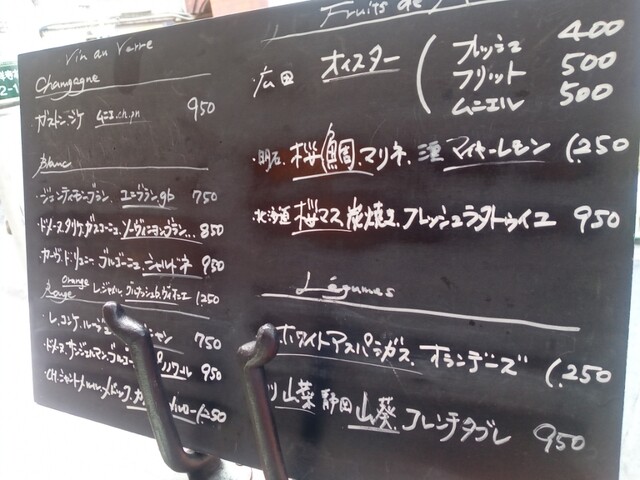 Vin au Verre
Champagne
ガストン・シケ ムニエ.ch.pn 950
Blanc
・ジュンティモン・ブラン. ユニブラン.gb 750
・ドメーヌ タリケ.ガスコーニュ ソーヴィニヨンブラン... 850
・カーヴ・ド・リュニー ブルゴーニュ シャルドネ 950
Orange
レ.ジャメル. 1250
Rouge
・レ.コンケ.ルージュ 750
ピノノワール 950
1250
Fruits de
・広田 オイスター
フレッシュ 400
フリット 500
ムニエル 500
・明石. 桜鯛.マリネ. マイヤーレモン 1,250
・北海道 桜マス 炭焼き.フレッシュラタトゥイユ 950
Légumes
ホワイトアスパラガス. オランデーズ 1,250
山葵 静岡 山葵.フレンチタブレ 950